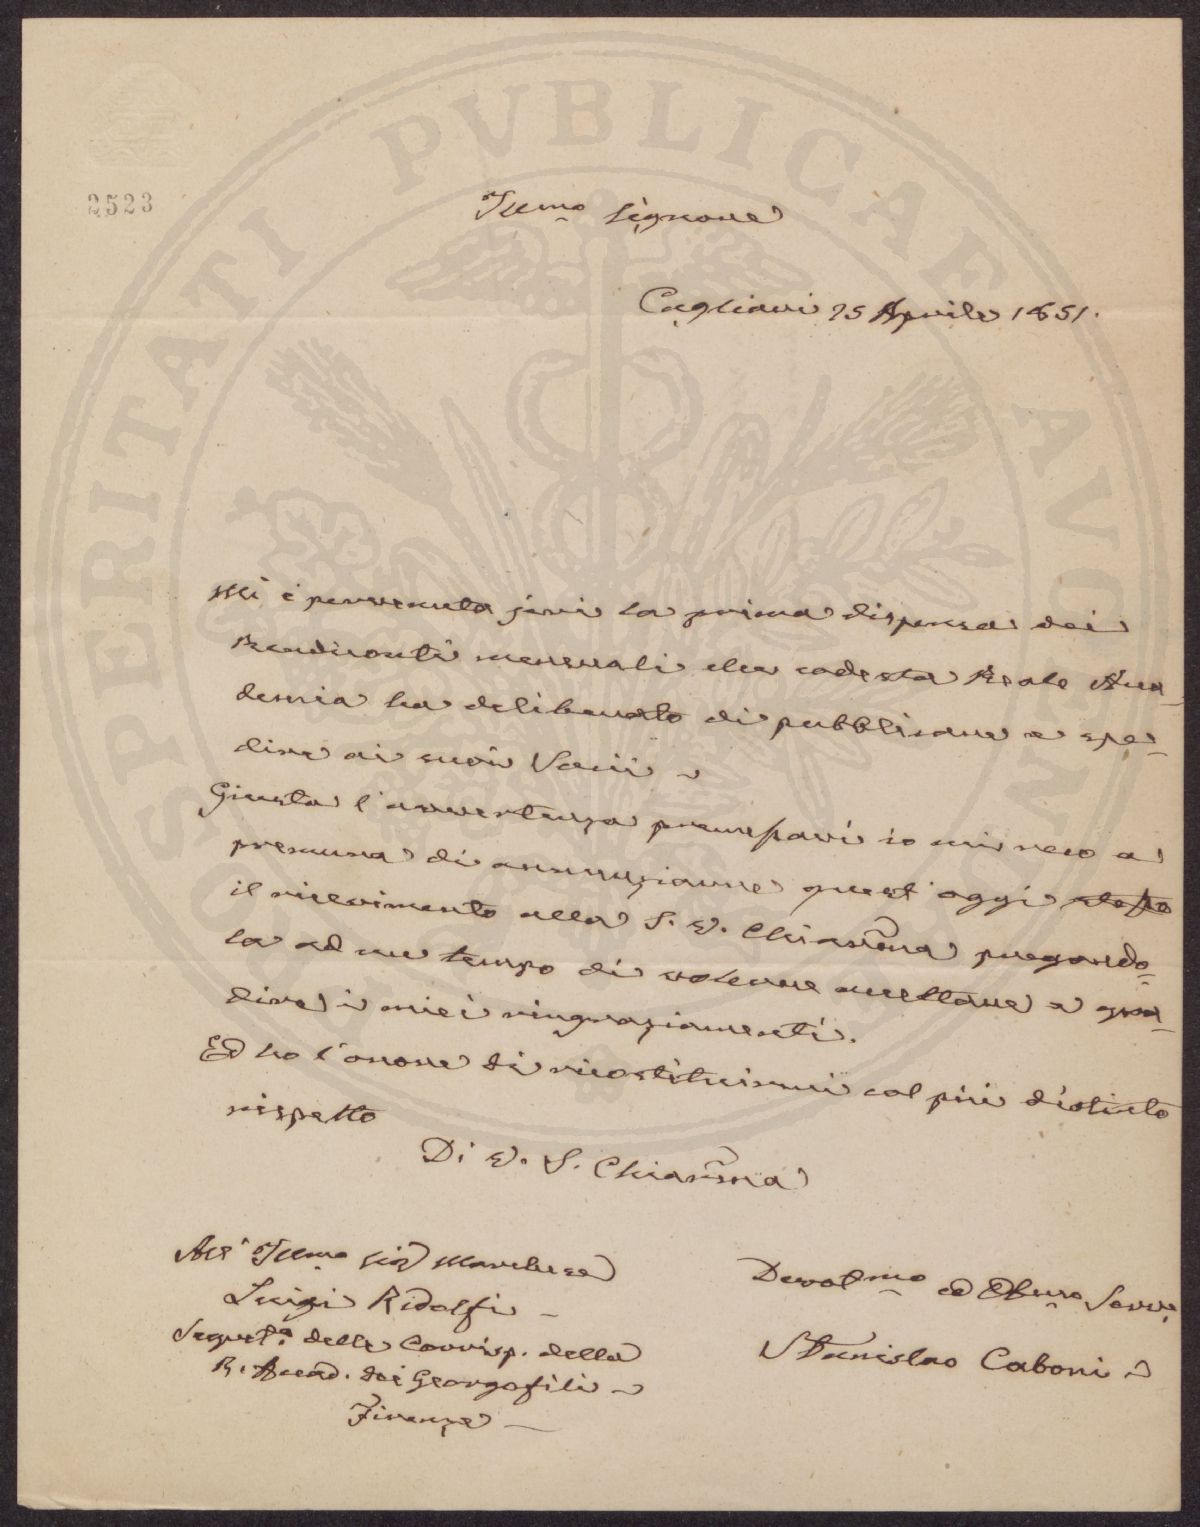 PROSPERITATI PVBLICAE AVGENDAE
2523
Illmo Signore
Cagliari 25 Aprile 1851.
Mi è pervenuta jeri la prima dispensa dei
Rendiconti mensuali che codesta Reale Acca-
demia ha deliberato di pubblicare e spe-
dire ai suoi Socii
Giusta l'avvertenza premessavi io mi reco a
premura di annunziarne quest'oggi stesso
il ricevimento alla S. V. Chiarma pregando-
la ad un tempo di volerne accettare e gra-
dire i miei ringraziamenti.
Ed ho l'onore di ricostituirmi col più distinto
rispetto
Di V. S. Chiarma
All' Illmo Sig Marchese
Luigi Ridolfi
Segreta delle Corrisp. della
R. Accad. dei Georgofili
Firenze
Devotmo ed Obbmo Serve
Stanislao Caboni